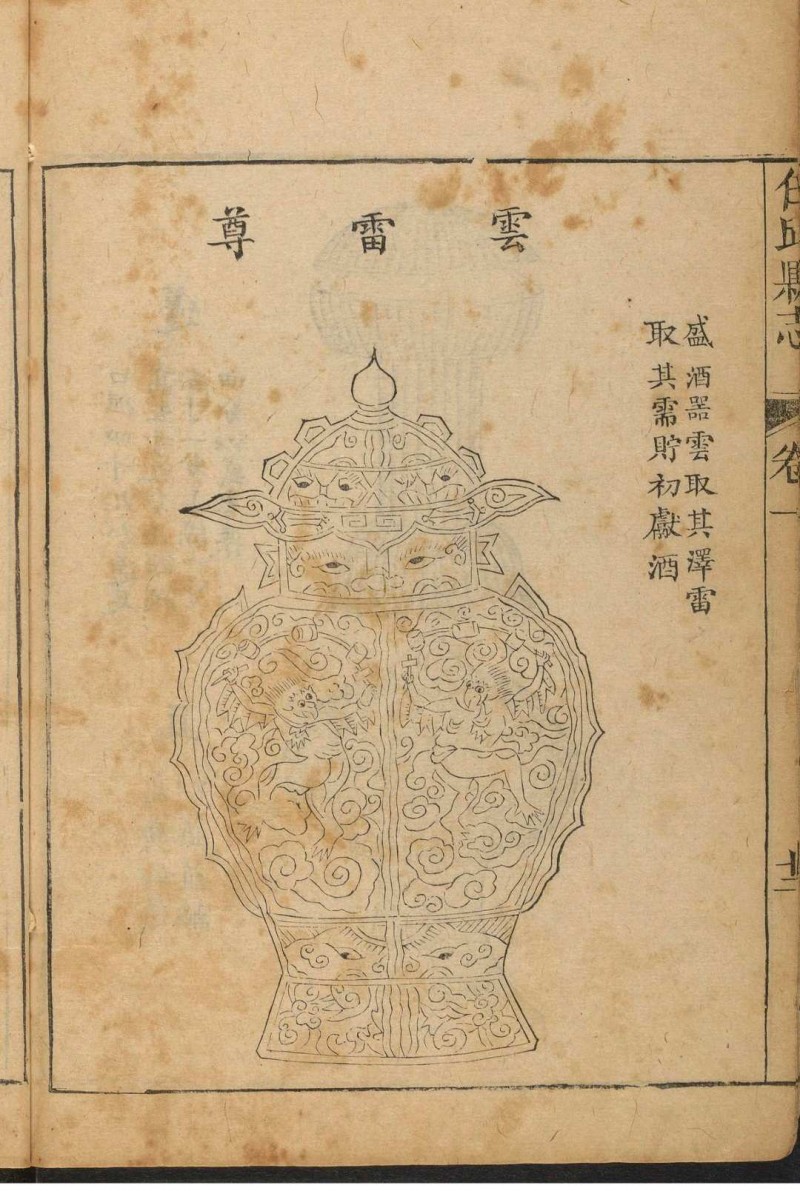 雲雷尊
盛酒噐雲取其澤雷
取其需貯初獻酒
任邱縣志
卷一